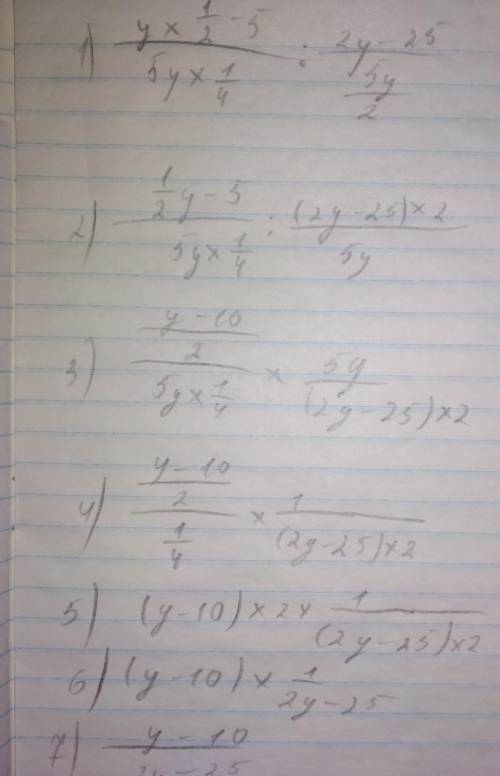 1) (y × 1/2 - 5)/(5y × 1/4) : (2y - 25)/(5y/2)
2) (1/2 y - 5)/(5y × 1/4) : ((2y - 25) × 2)/(5y)
3) ((y - 10)/2)/(5y × 1/4) × (5y)/((2y - 25) × 2)
4) ((y - 10)/2)/(1/4) × 1/((2y - 25) × 2)
5) (y - 10) × 2 × 1/((2y - 25) × 2)
6) (y - 10) × 1/(2y - 25)
7) (y - 10)/(2y - 25)